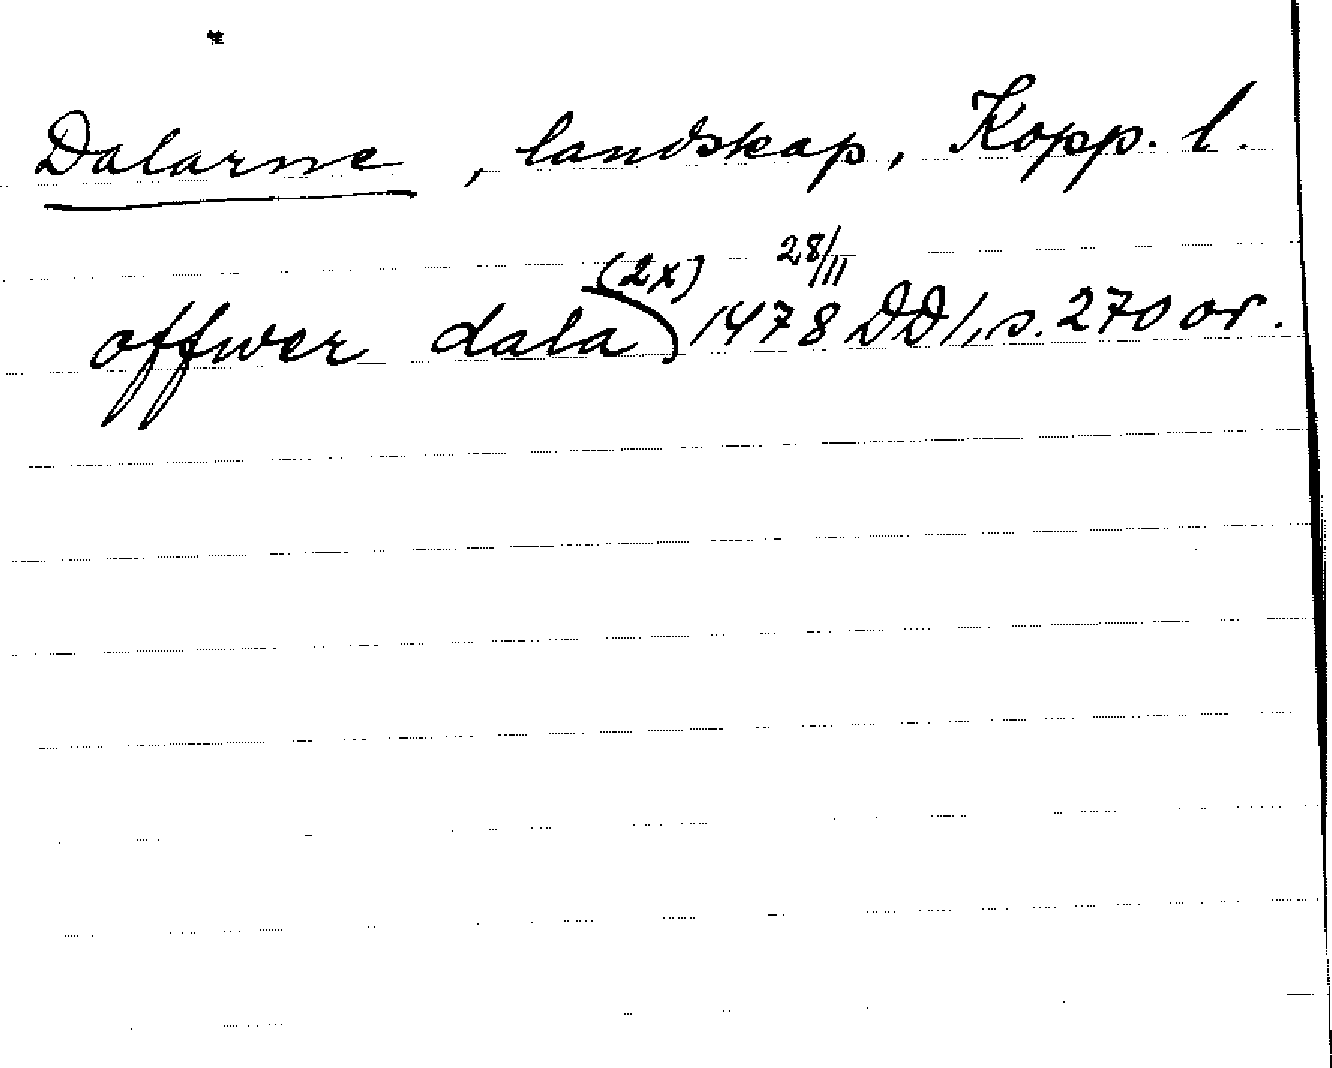 Dalarne, landskap, Kopp. l.
offwer dala (2x) 1478 28/11 DD 1, s. 270 or.